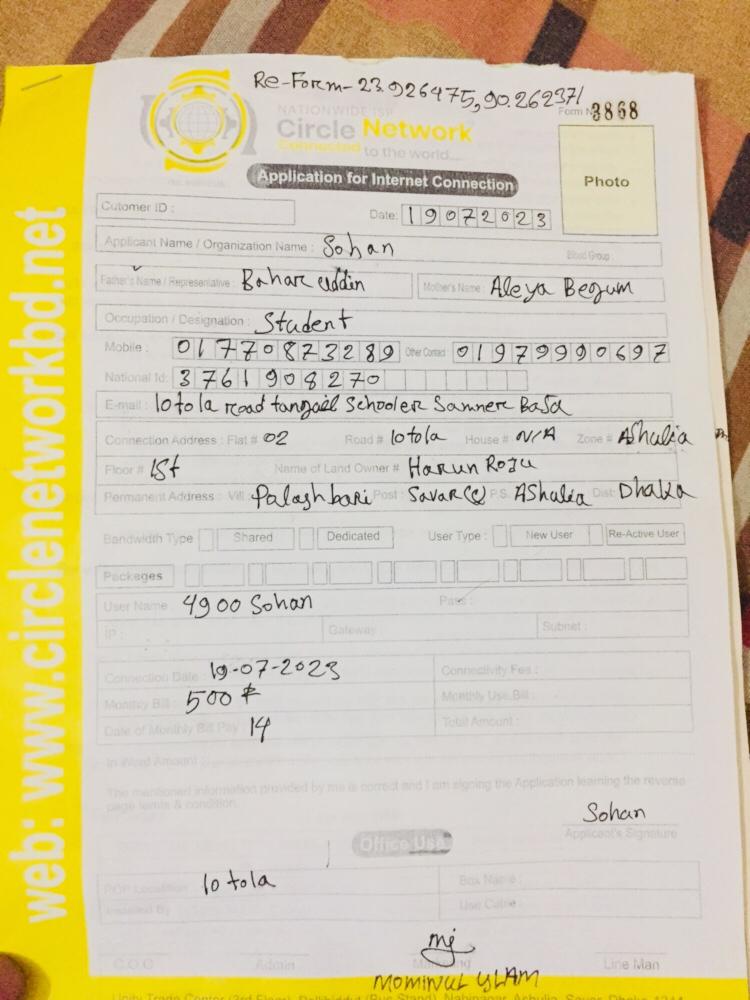 Re-Form-23.926475,90.262371
NATIONWIDE ISP
Form N 3868
Circle Network
Connected to the world....
Application for Internet Connection
Photo
Cutomer ID :
Date: 19072023
Applicant Name / Organization Name : Sohan
Blood Group :
Father's Name / Representative : Bahar uddin Mother's Name : Aleya Begum
Occupation / Designation : Student
Mobile : 01770873289 Other Contact 01979990697
National Id: 3761908270
E-mail : 10tola road tangail Schooler Samner Basa
Connection Address : Flat # 02 Road # 10tola House # N/A Zone # Ashulia
Floor # 1st Name of Land Owner # Harun Roju
Permanent Address : Vill : Palashbari Post : Savar P.S. AShulia Dist: Dhaka
Bandwidth Type Shared Dedicated User Type : New User Re-Active User
Packages
User Name : 4900 Sohan Pass :
IP : Gateway Subnet :
Connection Date : 19-07-2023 Connectivity Fee :
Monthly Bill : 500 Monthly Use Bill :
Date of Monthly Bill Pay : 14 Total Amount :
In Word Amount :
The mentioned information provided by me is correct and I am signing the Application learning the reverse
page terms & condition.
Sohan
Applicant's Signature
Office Use
POP Location 10 tola Box Name :
Installed By Use Cable :
C.O.O Admin Marketing Line Man
MOMINUL YSLAM
web: www.circlenetworkbd.net